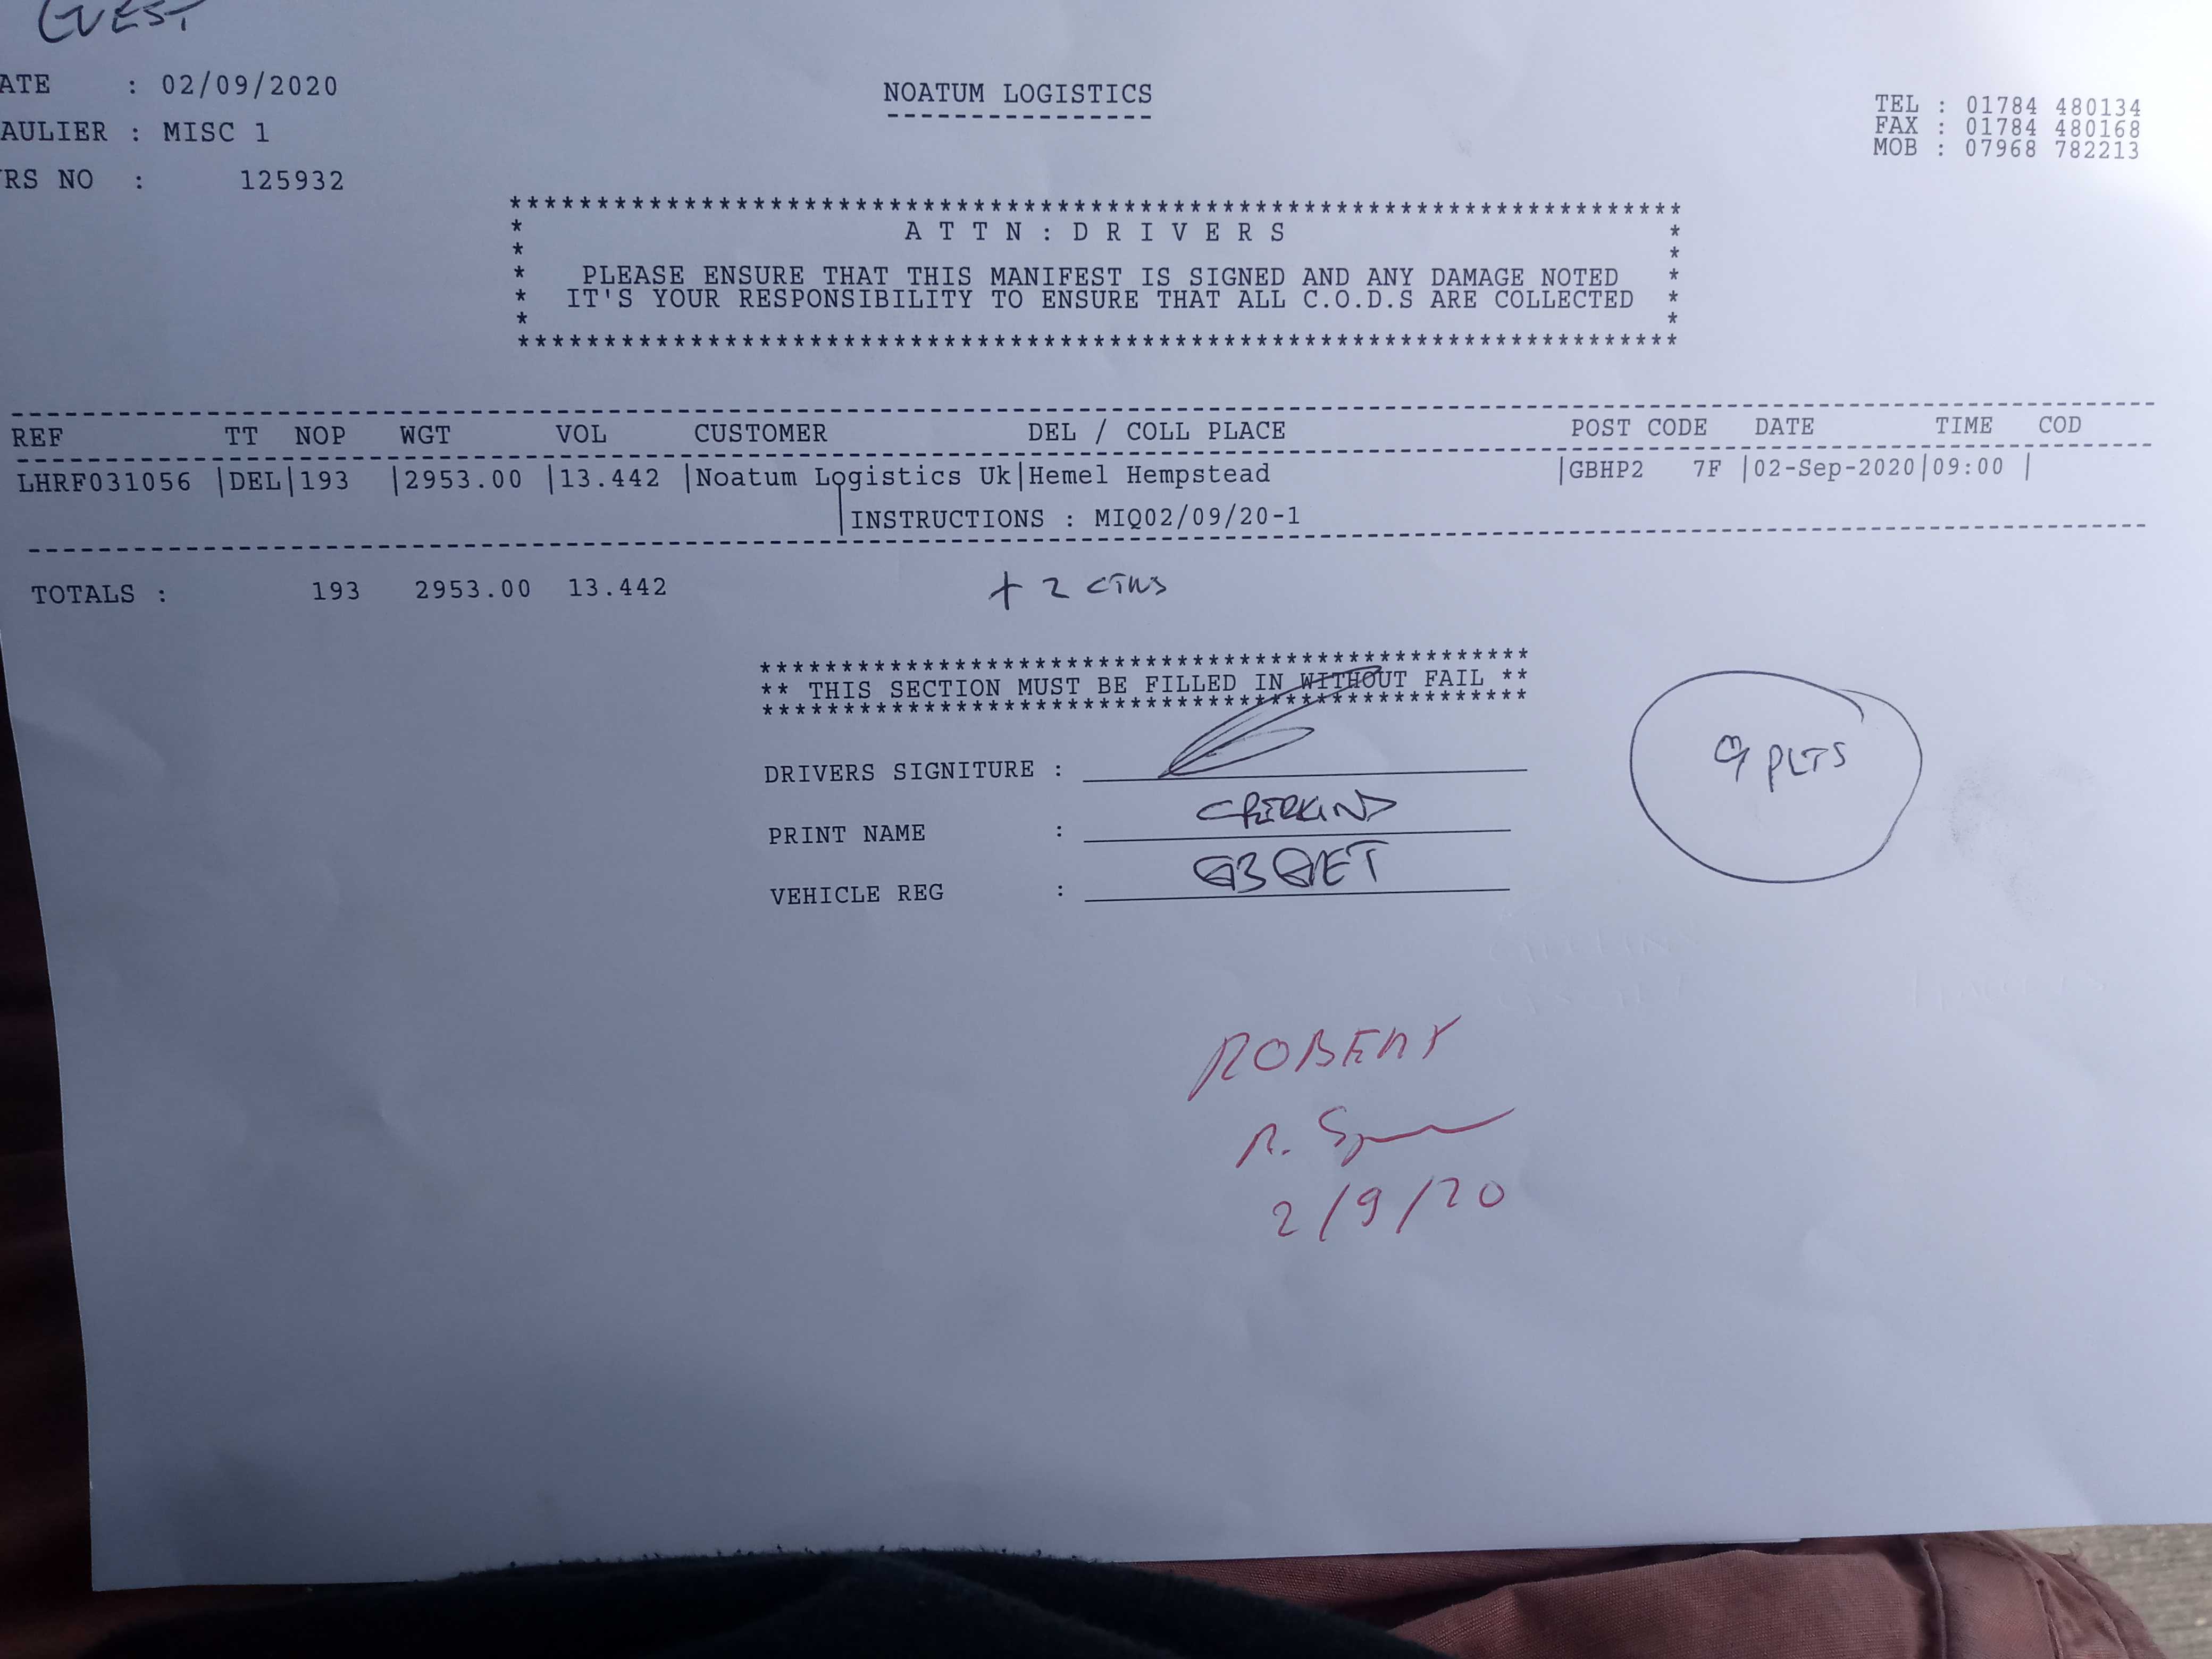 GUEST
ATE : 02/09/2020
NOATUM LOGISTICS
----------------
TEL : 01784 480134
AULIER : MISC 1
FAX : 01784 480168
MOB : 07968 782213
RS NO : 125932
A T T N : D R I V E R S
PLEASE ENSURE THAT THIS MANIFEST IS SIGNED AND ANY DAMAGE NOTED
IT'S YOUR RESPONSIBILITY TO ENSURE THAT ALL C.O.D.S ARE COLLECTED
REF TT NOP WGT VOL CUSTOMER DEL / COLL PLACE POST CODE DATE TIME COD
LHRF031056 |DEL|193 |2953.00 |13.442 |Noatum Logistics Uk|Hemel Hempstead |GBHP2 7F |02-Sep-2020|09:00 |
|INSTRUCTIONS : MIQ02/09/20-1
TOTALS : 193 2953.00 13.442
+ 2 CTNS
** THIS SECTION MUST BE FILLED IN WITHOUT FAIL **
DRIVERS SIGNITURE :
9 PLTS
PRINT NAME :
VEHICLE REG :
ROBERT
R.
2/9/20